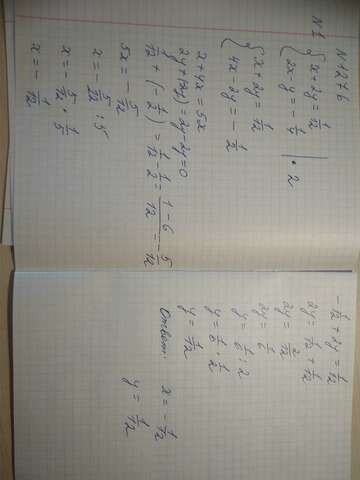 N 1276
N1
{ x + 2y = 1/12
{ 2x - y = -1/4 | · 2
{ x + 2y = 1/12
{ 4x - 2y = -1/2
x + 4x = 5x
2y + (-2y) = 2y - 2y = 0
1/12 + (-1/2) = 1/12 - 1/2 = (1 - 6)/12 = -5/12
5x = -5/12
x = -5/12 : 5
x = -5/12 · 1/5
x = -1/12
-1/12 + 2y = 1/12
2y = 1/12 + 1/12
2y = 2/12
2y = 1/6
y = 1/6 : 2
y = 1/6 · 1/2
y = 1/12
Ответ: x = -1/12
y = 1/12